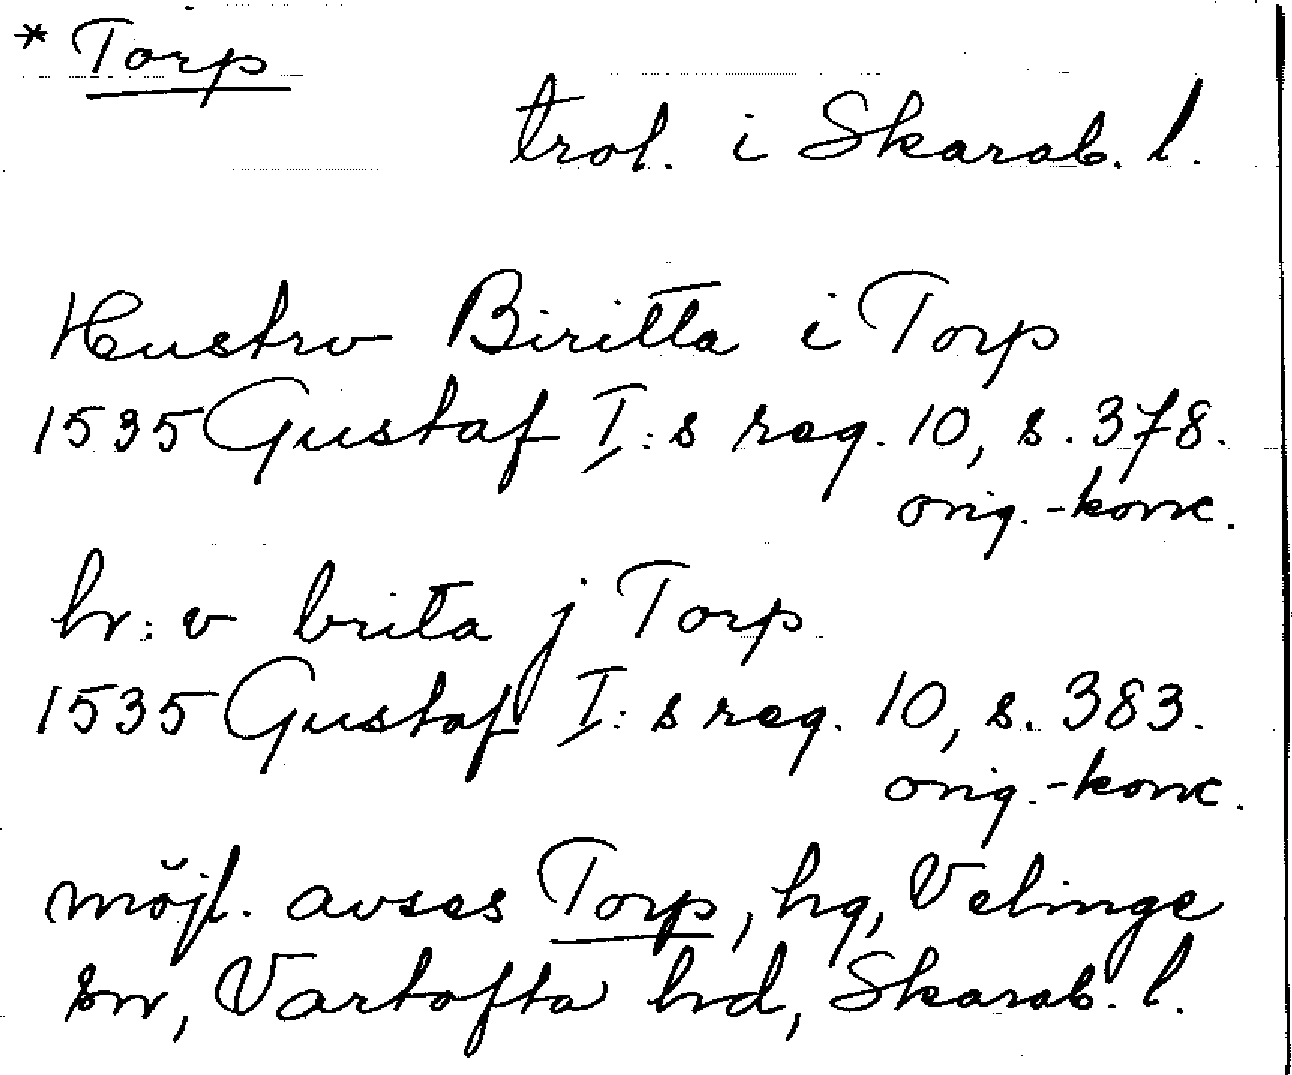 * Torp
trol. i Skarab. l.
Hustrv Biritta i Torp
1535 Gustaf I:s reg. 10, s. 378.
orig.-konc.
hr: v brita j Torp
1535 Gustaf I:s reg. 10, s. 383.
orig.-konc.
möjl. avses Torp, hg, Velinge
sn, Vartofta hd, Skarab. l.